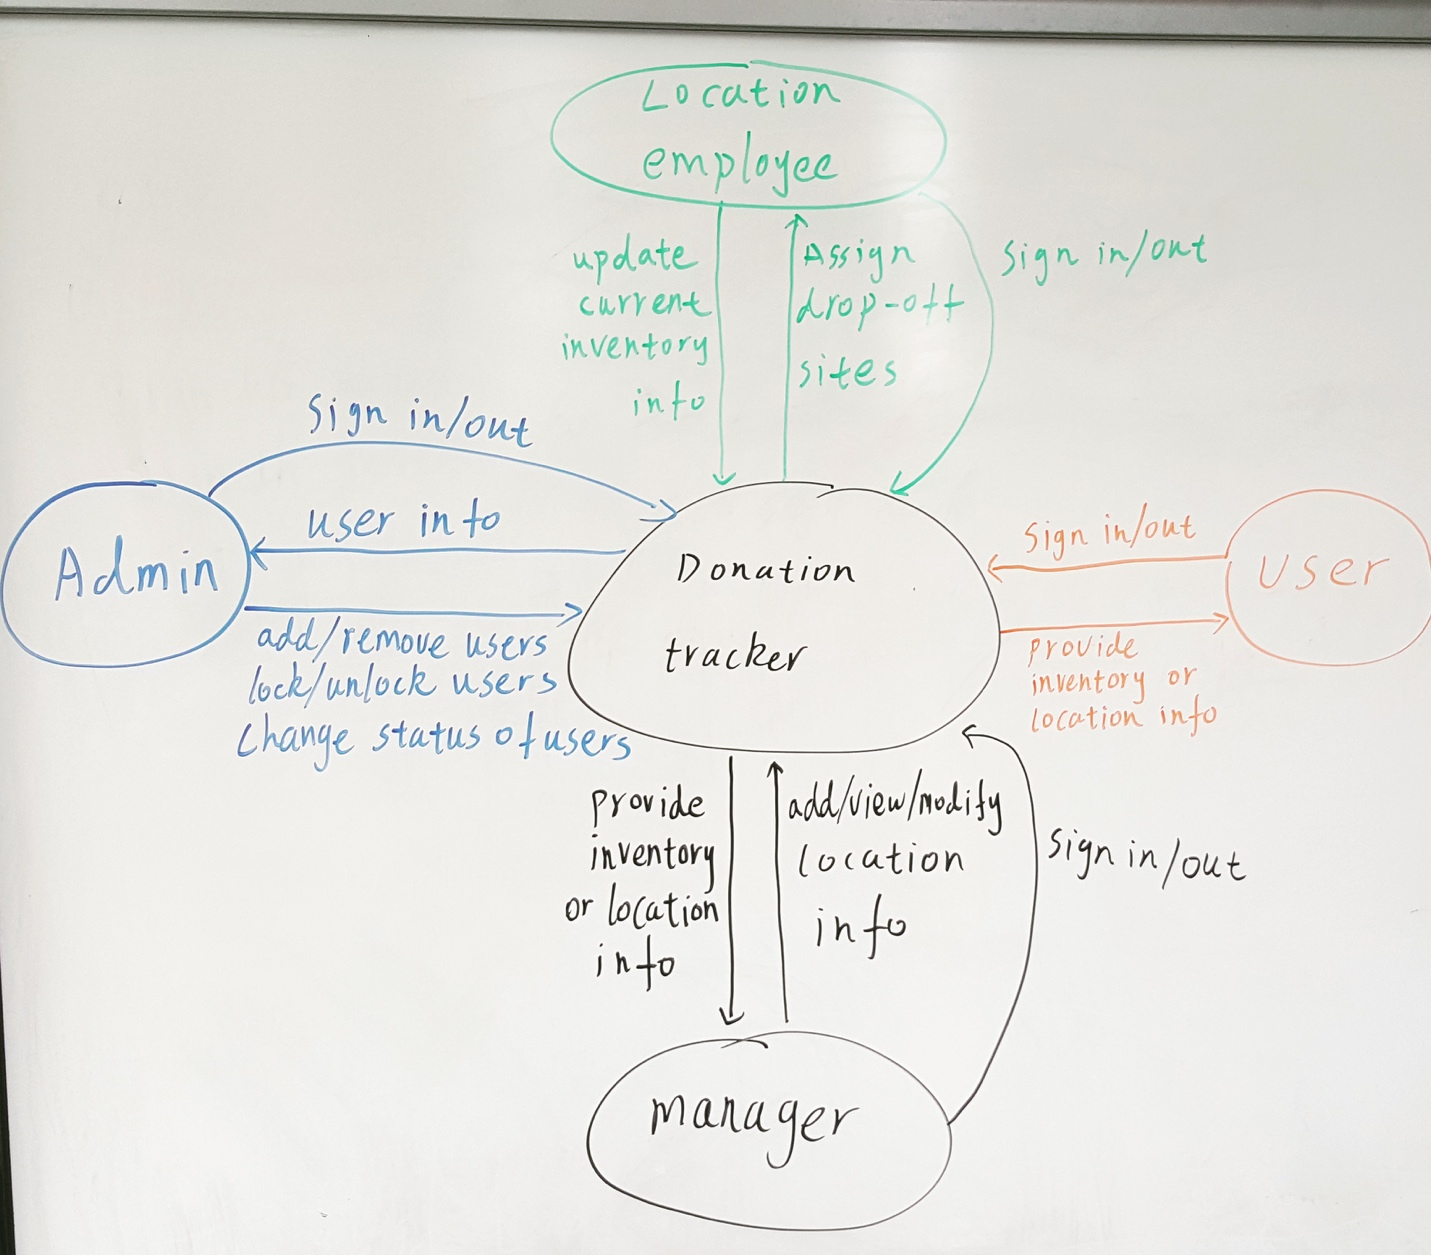 Location
employee
update
current
inventory
info
Assign
drop-off
sites
sign in/out
sign in/out
user info
Admin
add/remove users
lock/unlock users
change status of users
Donation
tracker
sign in/out
user
provide
inventory or
location info
provide
inventory
or location
info
add/view/modify
location
info
sign in/out
manager